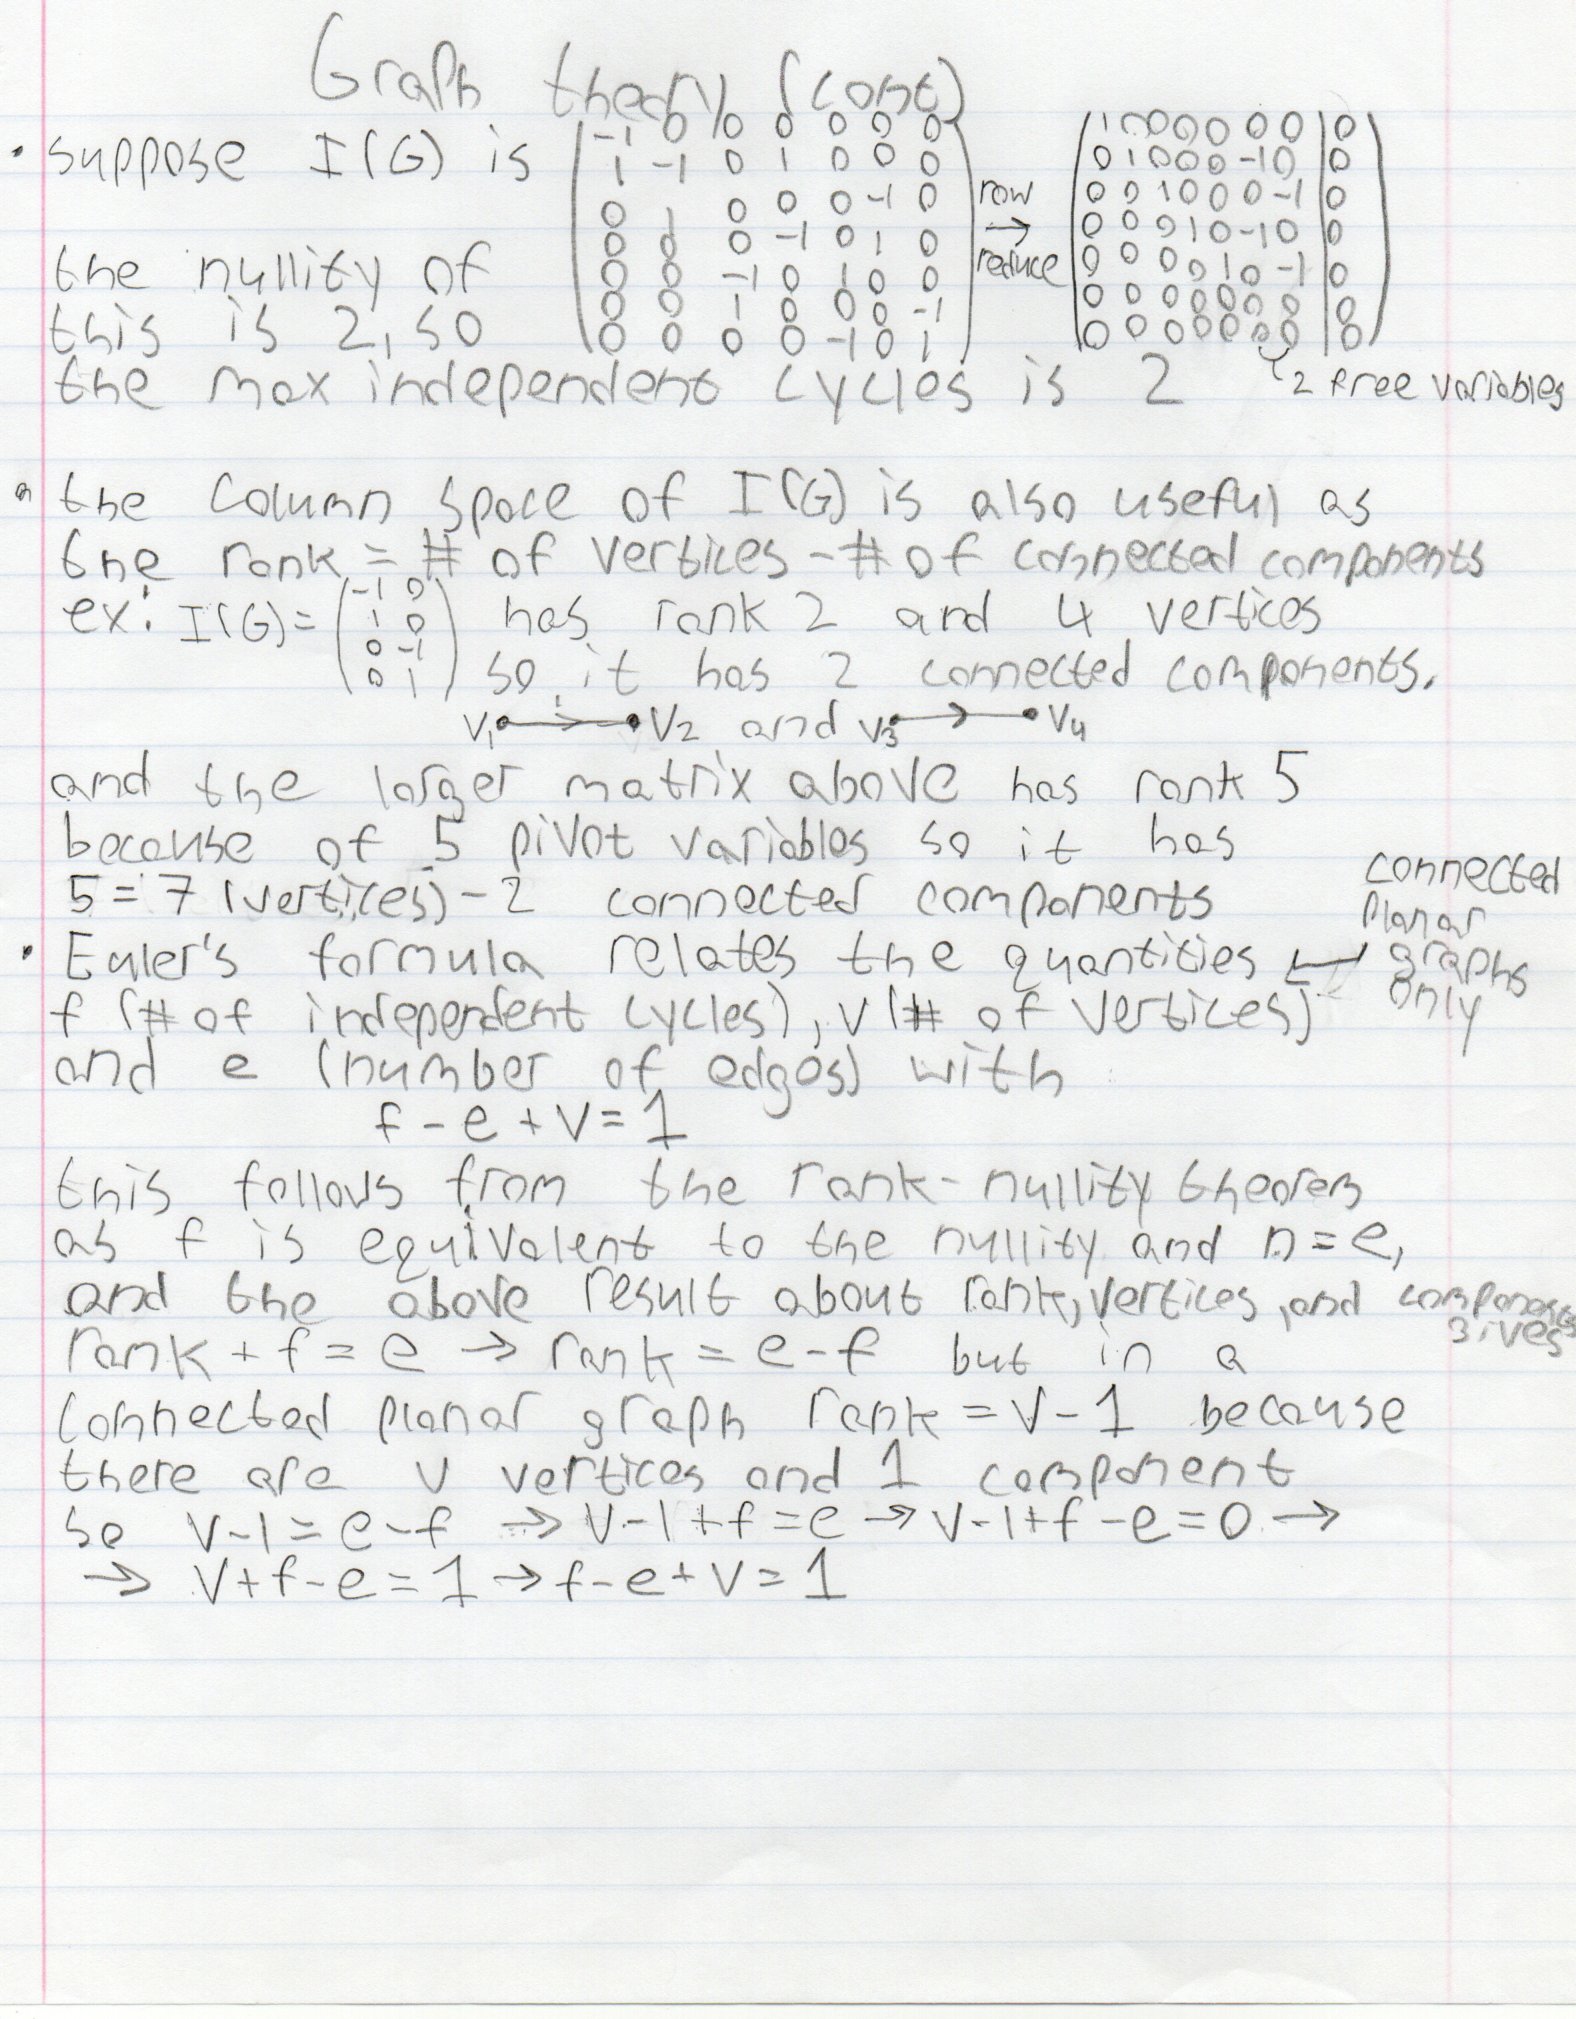 Graph theory (cont)
• suppose I(G) is
the nullity of
this is 2, so
-1 0 0 0 0 0 0
1 -1 0 1 0 0 0
0 1 0 0 0 -1 0
0 0 0 -1 0 1 0
0 0 -1 0 1 0 0
0 0 1 0 0 0 -1
0 0 0 0 -1 0 1
row
→
reduce
1 0 0 0 0 0 0 | 0
0 1 0 0 0 -1 0 | 0
0 0 1 0 0 0 -1 | 0
0 0 0 1 0 -1 0 | 0
0 0 0 0 1 0 -1 | 0
0 0 0 0 0 0 0 | 0
0 0 0 0 0 0 0 | 0
2 free variables
the max independent cycles is 2
• the column space of I(G) is also useful as
the rank = # of vertices - # of connected components
ex: I(G) =
-1 0
1 0
0 -1
0 1
has rank 2 and 4 vertices
so it has 2 connected components.
V1 V2 and V3 V4
and the larger matrix above has rank 5
because of 5 pivot variables so it has
5 = 7 (vertices) - 2 connected components
• Euler's formula relates the quantities ←
connected
planar
graphs
only
f (# of independent cycles), v (# of vertices)
and e (number of edges) with
f - e + v = 1
this follows from the rank-nullity theorem
as f is equivalent to the nullity and n = e,
and the above result about rank, vertices, and components
gives
rank + f = e → rank = e - f but in a
connected planar graph rank = v - 1 because
there are v vertices and 1 component
so v - 1 = e - f → v - 1 + f = e → v - 1 + f - e = 0 →
→ v + f - e = 1 → f - e + v = 1